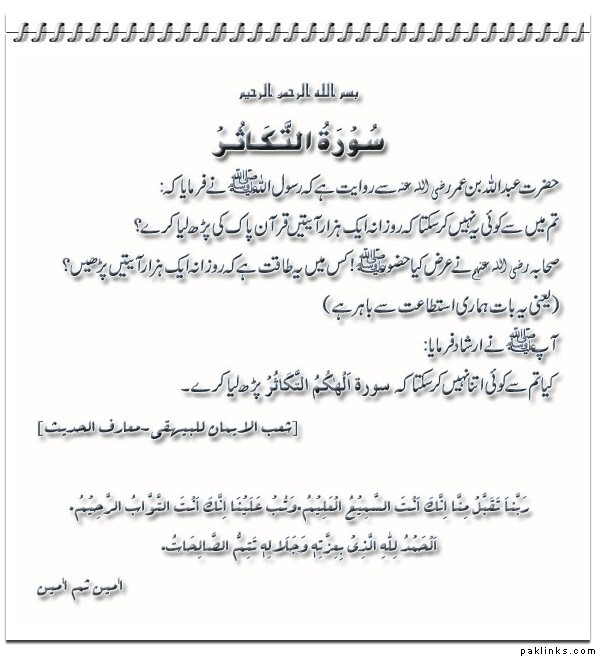 بسم الله الرحمن الرحیم
سُوْرَةُ التَّكَاثُرْ
حضرت عبداللہ بن عمر رضی اللہ عنہ سے روایت ہے کہ رسول اللہ ﷺ نے فرمایا کہ:
تم میں سے کوئی یہ نہیں کرسکتا کہ روزانہ ایک ہزار آیتیں قرآن پاک کی پڑھ لیا کرے؟
صحابہ رضی اللہ عنہم نے عرض کیا حضور ﷺ! کس میں یہ طاقت ہے کہ روزانہ ایک ہزار آیتیں پڑھیں؟
(یعنی یہ بات ہماری استطاعت سے باہر ہے)
آپ ﷺ نے ارشاد فرمایا:
کیا تم سے کوئی اتنا نہیں کرسکتا کہ سورة اَلْهٰكُمُ التَّكَاثُرْ پڑھ لیا کرے۔
[شعب الایمان للبیهقی-معارف الحدیث]
رَبَّنَا تَقَبَّلْ مِنَّا اِنَّكَ اَنْتَ السَّمِيْعُ الْعَلِيْمُ. وَتُبْ عَلَيْنَا اِنَّكَ اَنْتَ التَّوَّابُ الرَّحِيْمُ.
اَلْحَمْدُ لِلّٰهِ الَّذِىْ بِعِزَّتِهٖ وَجَلَالِهٖ تَتِمُّ الصَّالِحَاتُ.
اٰمین ثم اٰمین
paklinks.com